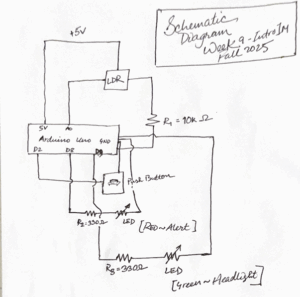 Schematic
Diagram
Week 9 - Intro IM
Fall 2025
+5V
LDR
5V A0
Arduino Uno GND
D2 D5
R1 = 10k Ω
Push Button
R2=330Ω LED [RED ~ Alert]
R3=330Ω LED
[Green ~ Headlight]